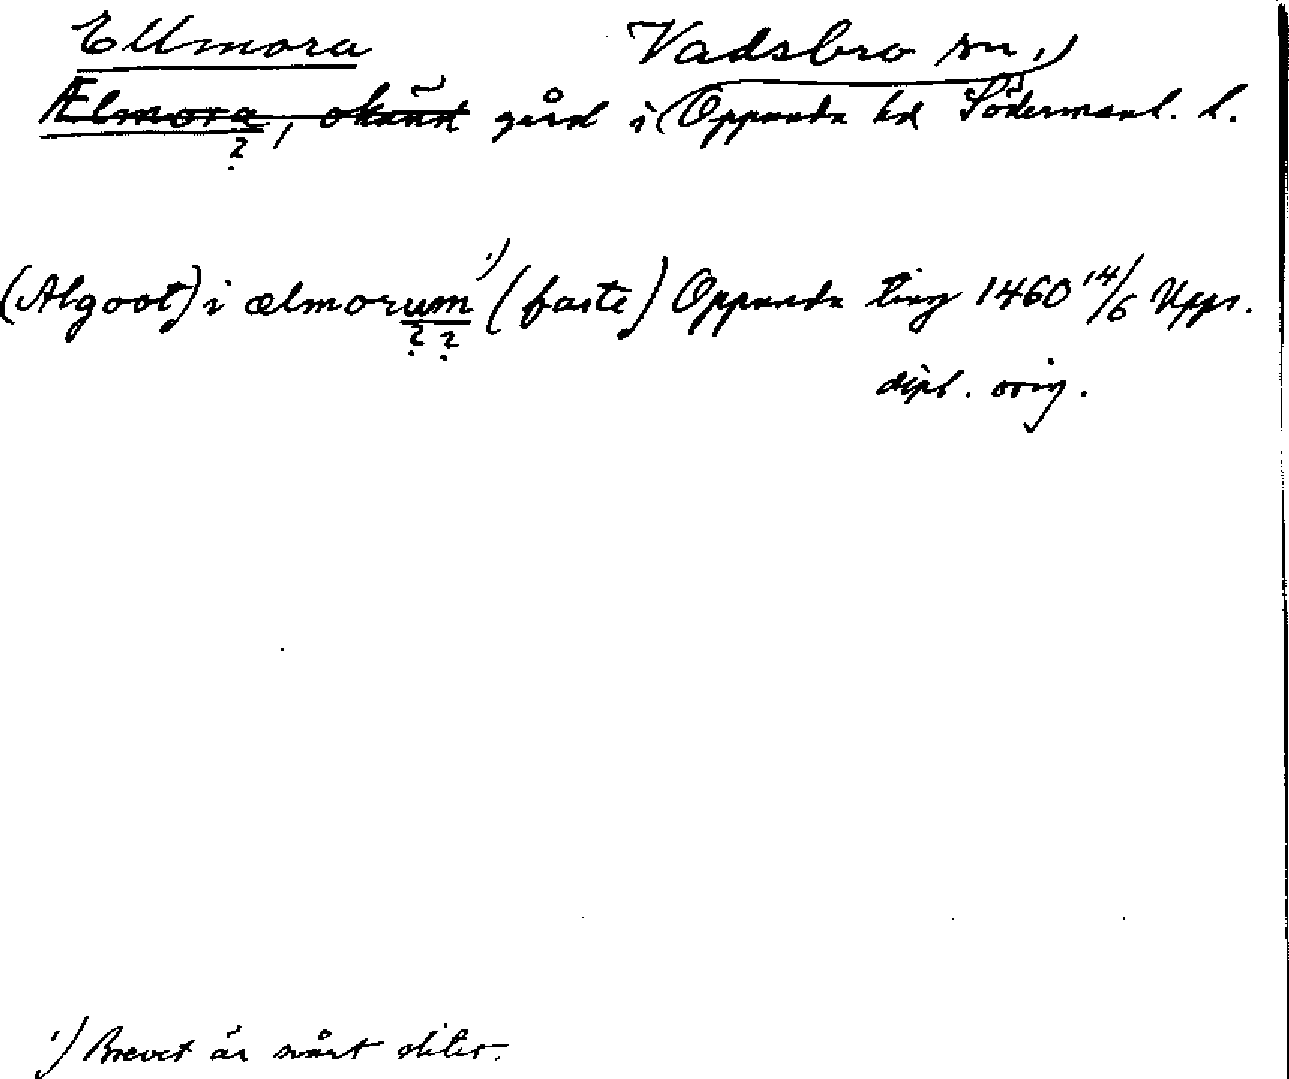 Ellmora Vadsbro sn,
Ælmora, okänd gård i Oppunda hd Södermanl. l.
?
(Algoot) i ælmorum ¹) (faste) Oppunda ting 1460 14/6 Upps.
? ?
dipl. orig.
¹) Brevet är svårt slitet.